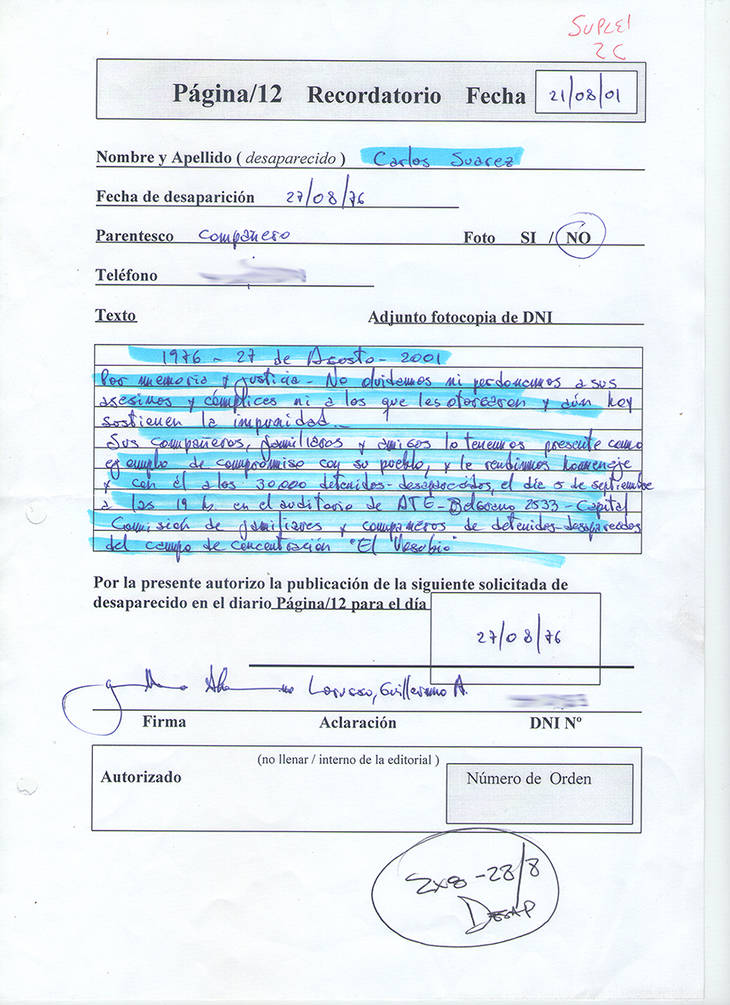 SUPLE
2C
Página/12 Recordatorio Fecha 21/08/01
Nombre y Apellido ( desaparecido ) Carlos Suarez
Fecha de desaparición 27/08/76
Parentesco Compañero Foto SI / NO
Teléfono
Texto Adjunto fotocopia de DNI
1976 - 27 de Agosto - 2001
Por memoria y justicia - No olvidamos ni perdonamos a sus
asesinos y cómplices ni a los que les otorgaron y aún hoy
sostienen la impunidad.
Sus compañeros, familiares y amigos lo tenemos presente como
ejemplo de compromiso con su pueblo, y le rendimos homenaje
y con él a los 30.000 detenidos-desaparecidos, el día 5 de septiembre
a las 19 h. en el auditorio de ATE - Belgrano 2533 - Capital
Comisión de familiares y compañeros de detenidos-desaparecidos
del campo de concentración "El Vesubio"
Por la presente autorizo la publicación de la siguiente solicitada de
desaparecido en el diario Página/12 para el día
27/08/76
Larusso, Guillermo A.
Firma Aclaración DNI Nº
(no llenar / interno de la editorial )
Autorizado Número de Orden
2x8 - 28/8
DESAP